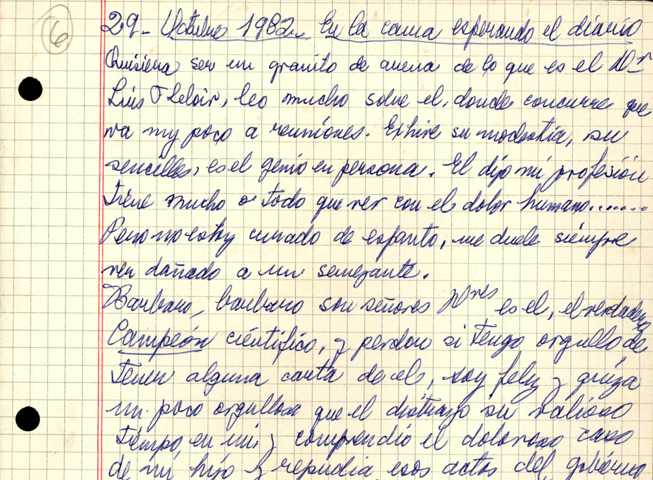 6
29- Octubre 1982. En la cama esperando el diario
Quisiera ser un granito de arena de lo que es el Dr
Luis F Leloir, leo mucho sobre el, donde concurre que
va my poco a reuniones. Exhive su modestia, su
sencilles, es el genio en persona. El dijo mi profesión
tiene mucho o todo que ver con el dolor humano......
Pero no estoy curado de espanto, me duele siempre
ver dañado a un semejante.
Barbaro, barbaro son señores es el, el verdadero
Campeón científico, y perdon si tengo orgullo de
tener alguna carta de el, soy feliz y quiza
un poco orgullosa que el distrajo su valioso
tiempo, en mi y comprendió el doloroso caso
de mi hijo y repudia esos actos del gobierno